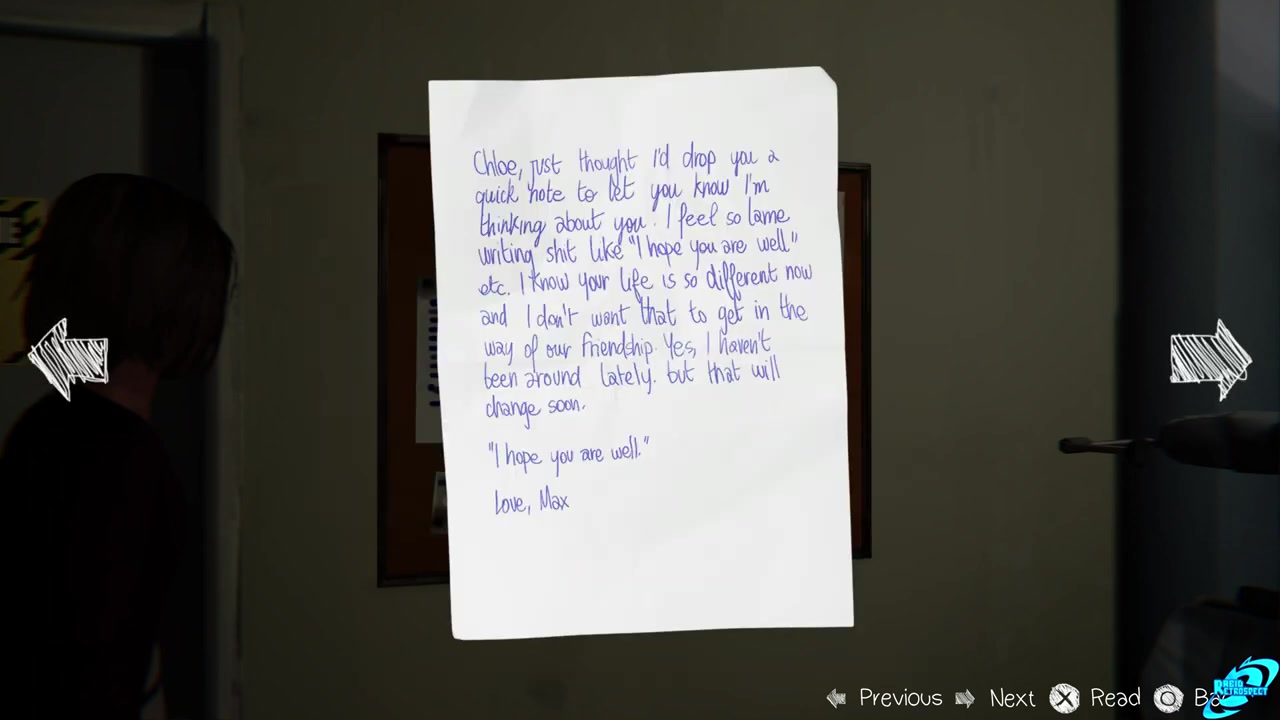 Chloe, just thought I'd drop you a
quick note to let you know I'm
thinking about you. I feel so lame
writing shit like "I hope you are well"
etc. I know your life is so different now
and I don't want that to get in the
way of our friendship. Yes, I haven't
been around lately. but that will
change soon.
"I hope you are well."
Love, Max
Previous Next Read Ba
RETROSPECT